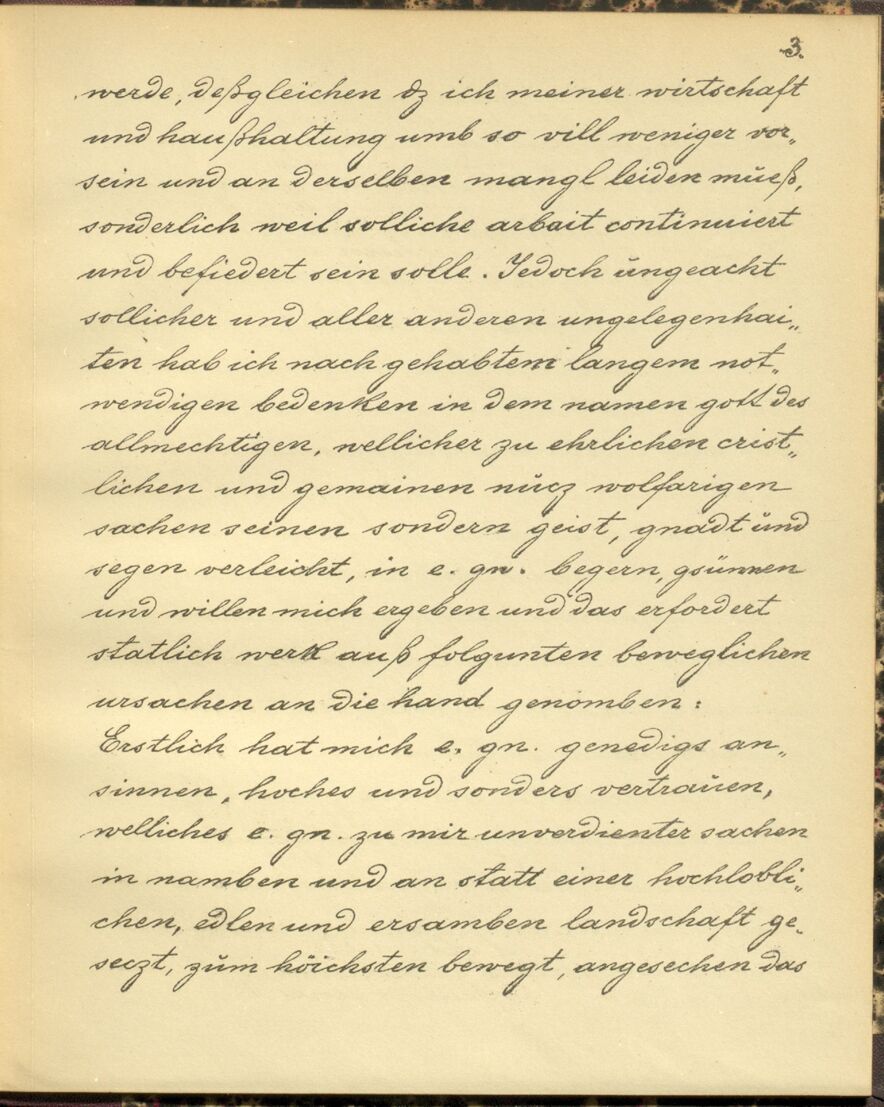 3.
werde, deßgleichen dz ich meiner wirtschaft
und haußhaltung umb so vill weniger vor„
sein und an derselben mangl leiden müeß,
sonderlich weil solliche arbait continuiert
und befiedert sein solle. Jedoch ungeacht
sollicher und aller anderen ungelegenhai„
ten hab ich nach gehabtem langem not„
wendigen bedenken in dem namen gott des
allmechtigen, wellicher zu ehrlichen crist„
lichen und gemainen nucz wolfarigen
sachen seinen sondern geist, gnadt und
segen verleicht, in e. gn. begern, gsünnen
und willen mich ergeben und das erfordert
statlich werk auß folgunten beweglichen
ursachen an die hand genomben:
Erstlich hat mich e. gn. genedigs an„
sinnen, hoches und sonders vertrauen,
welliches e. gn. zu mir unverdienter sachen
in namben und an statt einer hochlobli„
chen, edlen und ersamben landschaft ge„
seczt, zum höichsten bewegt, angesechen das